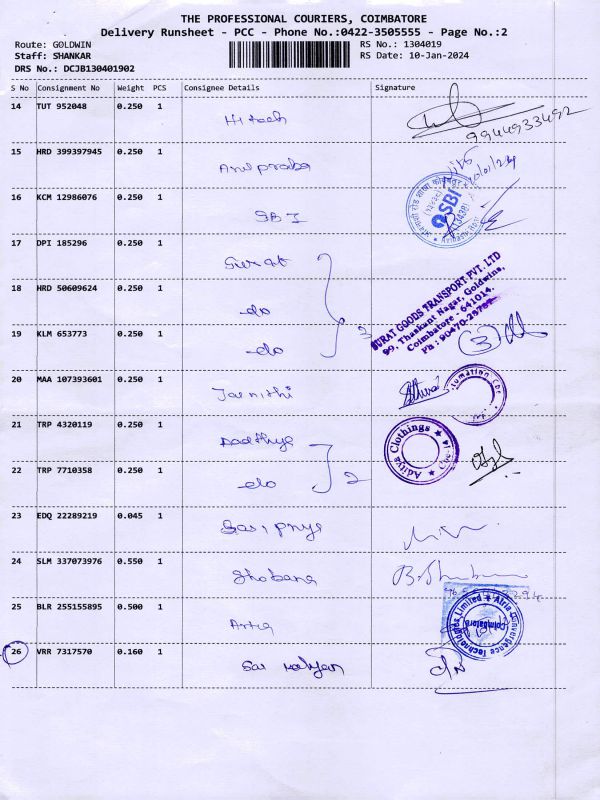 THE PROFESSIONAL COURIERS, COIMBATORE
Delivery Runsheet - PCC - Phone No.:0422-3505555 - Page No.:2
Route: GOLDWIN
RS No.: 1304019
Staff: SHANKAR
RS Date: 10-Jan-2024
DRS No.: DCJB130401902
S No Consignment No Weight PCS Consignee Details Signature
14 TUT 952048 0.250 1
Hi tech
9944933492
15 HRD 399397945 0.250 1
Anupraba
16 KCM 12986076 0.250 1
SBI
SBI
17 DPI 185296 0.250 1
Surat
18 HRD 50609624 0.250 1
do
19 KLM 653773 0.250 1
do
3
SURAT GOODS TRANSPORT PVT. LTD
90, Thaskant Nagar, Goldwins,
Coimbatore - 641014.
3
20 MAA 107393601 0.250 1
21 TRP 4320119 0.250 1
Aadthya
22 TRP 7710358 0.250 1
do
2
Aditya Clothings
23 EDQ 22289219 0.045 1
24 SLM 337073976 0.550 1
Shobana
25 BLR 255155895 0.500 1
Atria
Atria Convergence Technologies Limited
Coimbatore
26 VRR 7317570 0.160 1